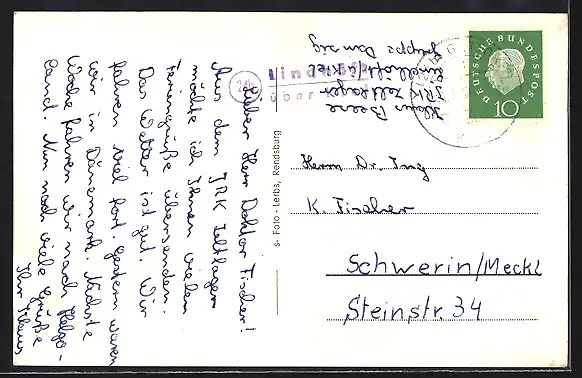 Lieber Herr Doktor Fischer!
Aus dem JRK Zeltlager
möchte ich Ihnen vielen
Feriengrüße übersenden.
Das Wetter ist gut. Wir
fahren viel fort. Gestern waren
wir in Dänemark. Nächste
Woche fahren wir nach Helgo-
land. Nun noch viele Grüße
Ihr Klaus
Klaus Beese
JRK Zeltlager
Lindhöft/Kiel
Gruppe Danzig
Lindhöft
über
DEUTSCHE BUNDESPOST
10
s- Foto - Lerbs, Rendsburg
Herrn Dr. Ing
K. Fischer
Schwerin/Meckl
Steinstr. 34